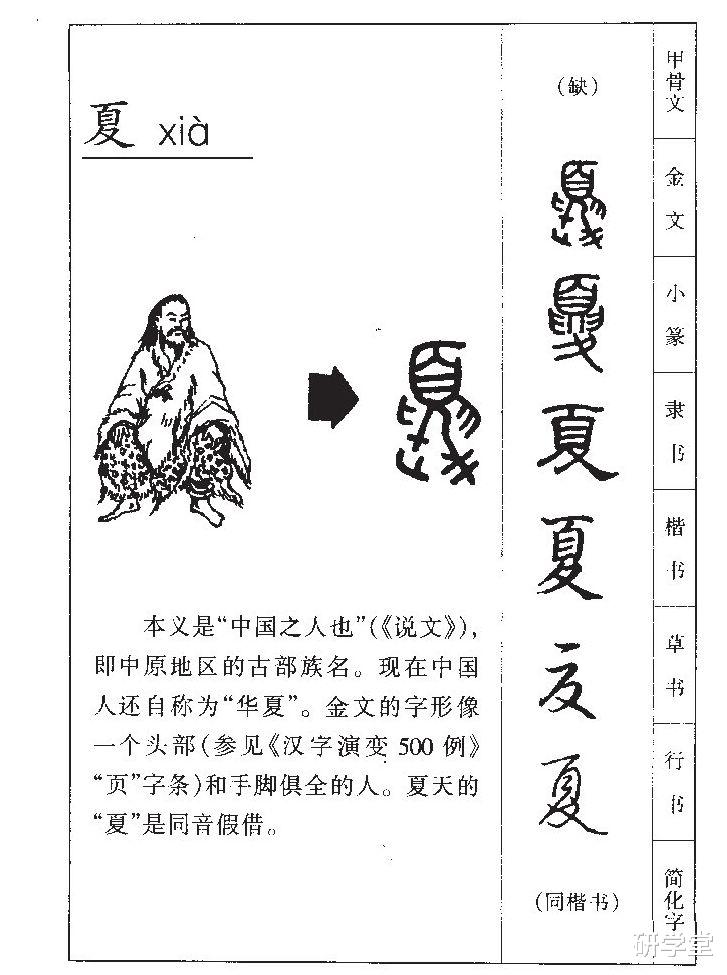 夏 xià
本义是“中国之人也”(《说文》),
即中原地区的古部族名。现在中国
人还自称为“华夏”。金文的字形像
一个头部(参见《汉字演变 500 例》
“页”字条)和手脚俱全的人。夏天的
“夏”是同音假借。
(缺)
夏
夏
夏
夏
夏
夏
(同楷书)
甲骨文
金文
小篆
隶书
楷书
草书
行书
简化字
研学堂